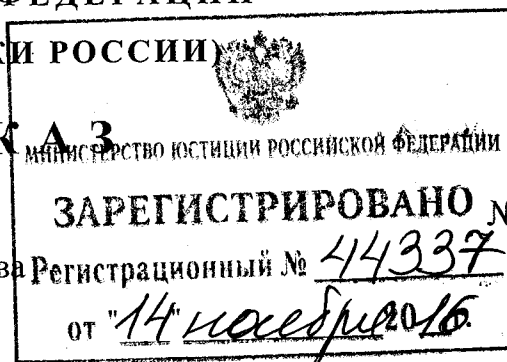 ФЕДЕРАЦИИ
КИ РОССИИ)
К А З
МИНИСТЕРСТВО ЮСТИЦИИ РОССИЙСКОЙ ФЕДЕРАЦИИ
ЗАРЕГИСТРИРОВАНО №
ва Регистрационный № 44337
от "14" ноября 2016.